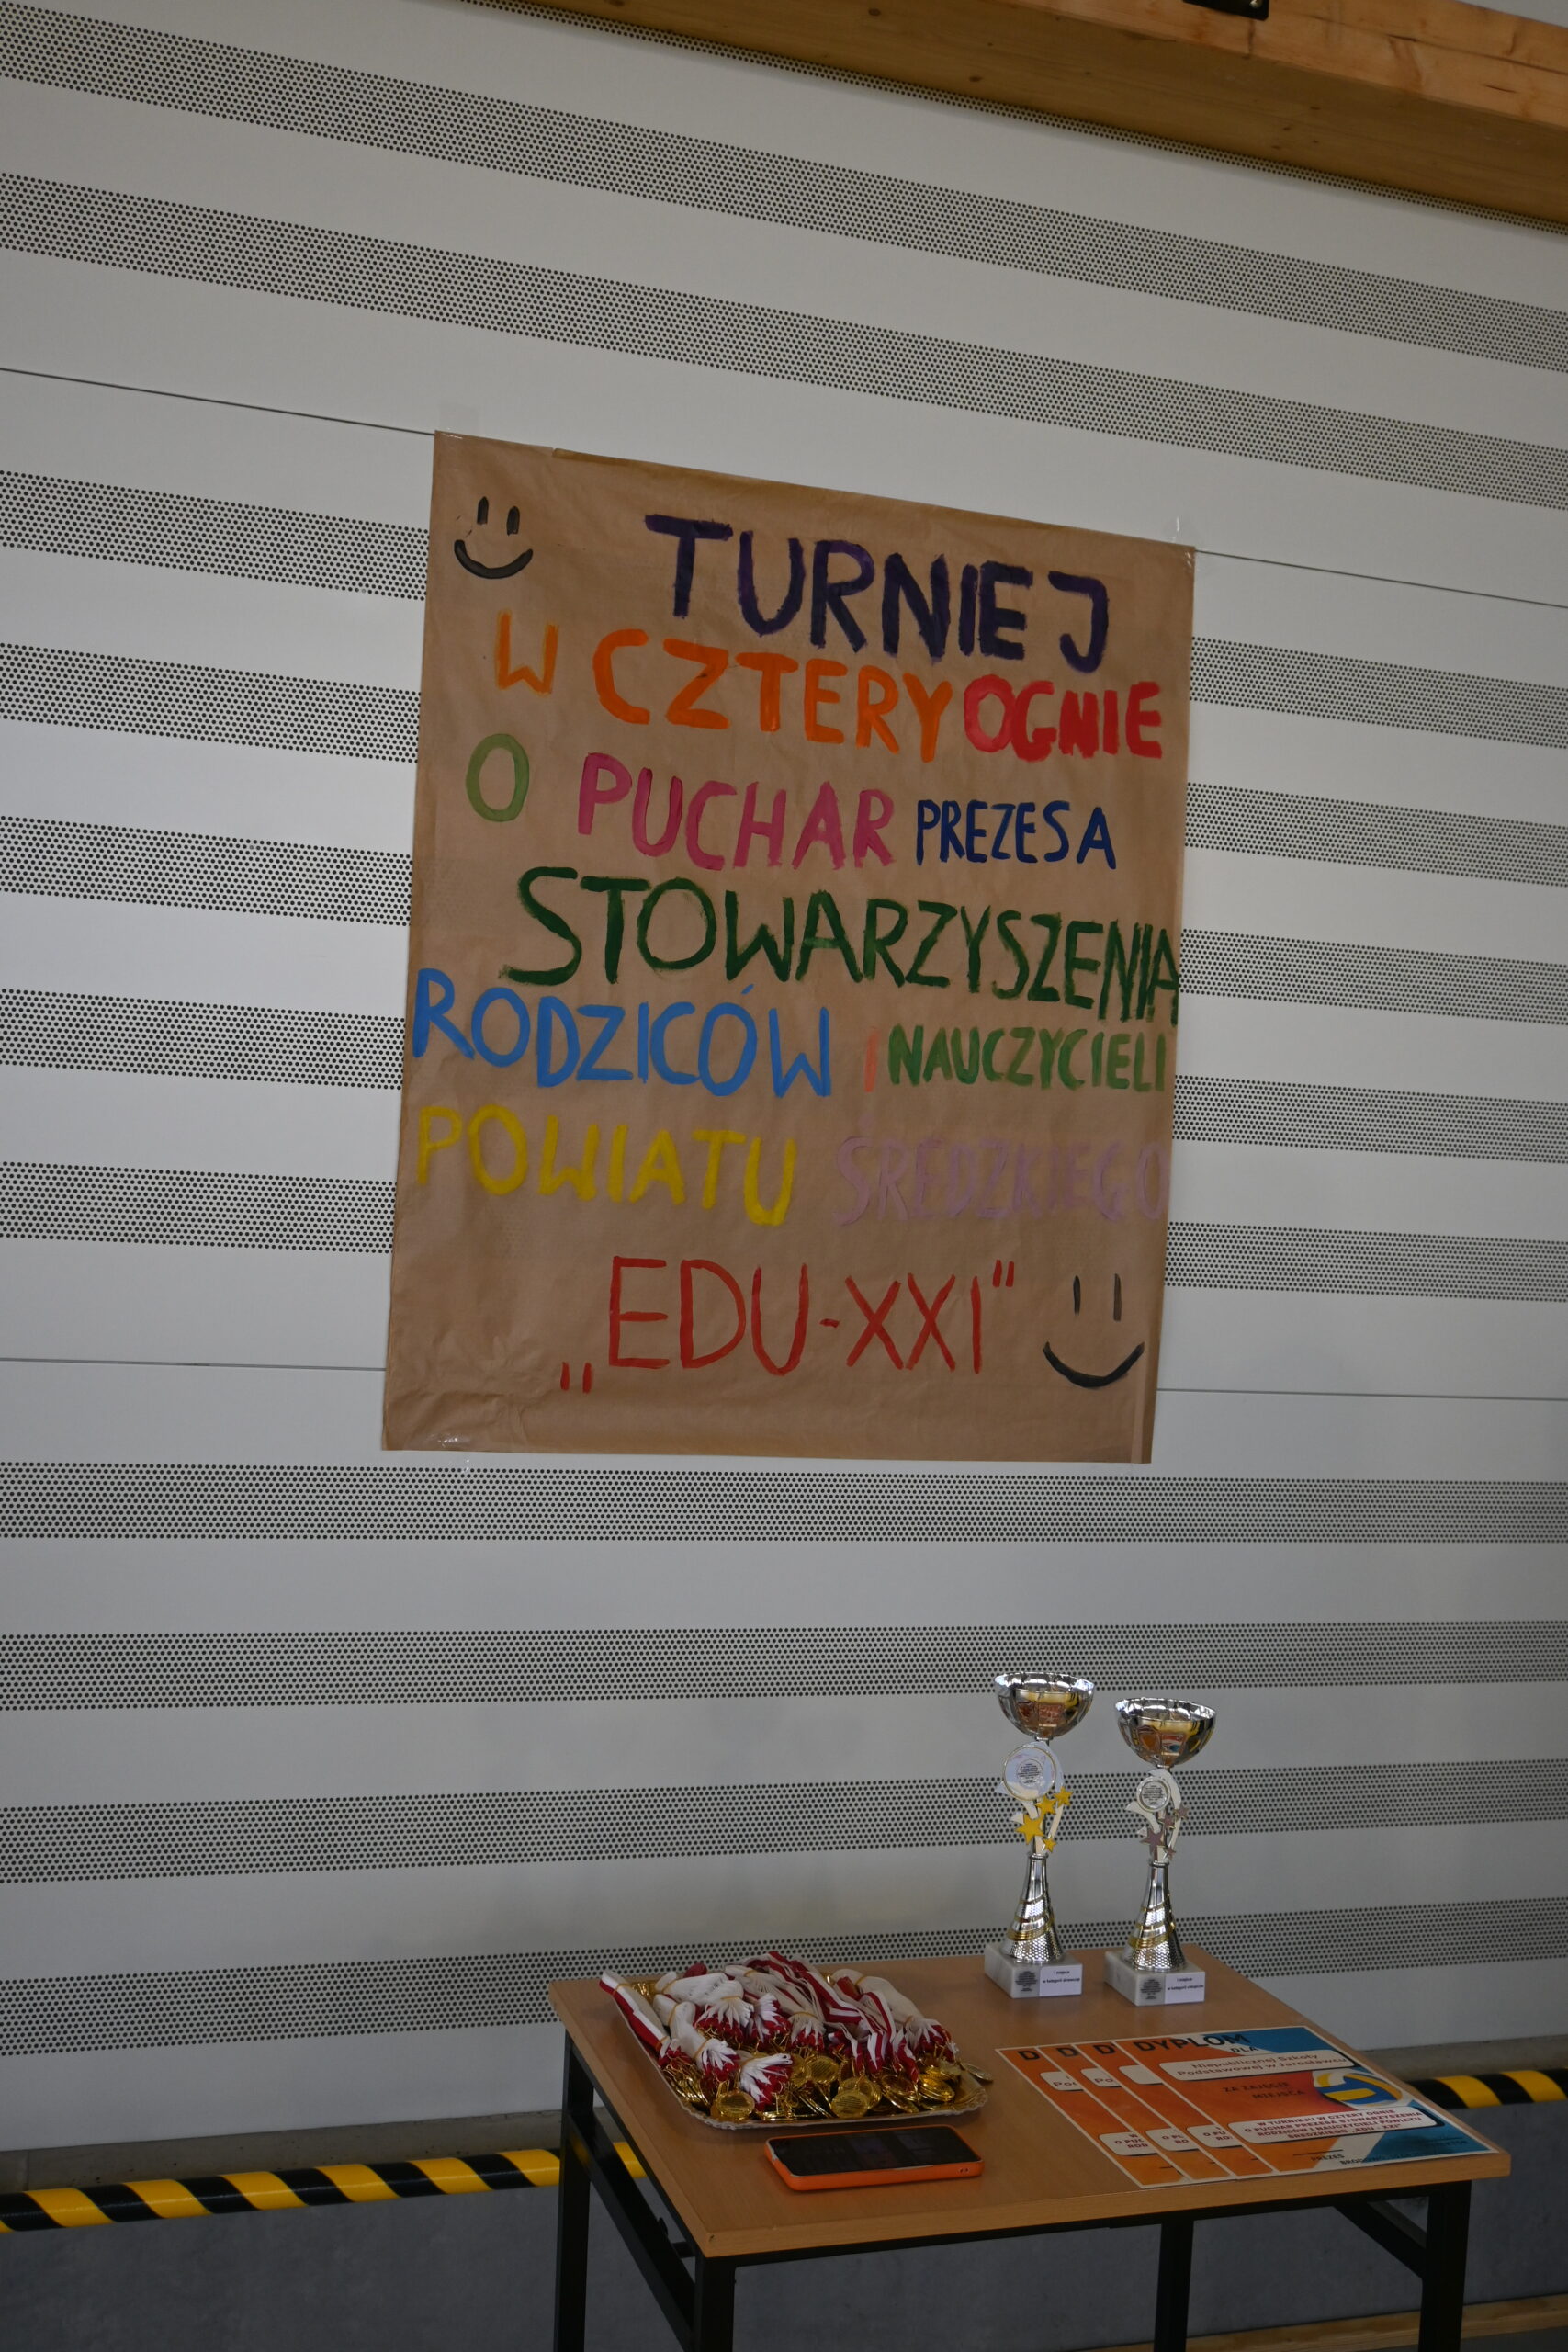 TURNIEJ
W CZTERY OGNIE
O PUCHAR PREZESA
STOWARZYSZENIA
RODZICÓW I NAUCZYCIELI
POWIATU ŚREDZKIEGO
„EDU-XXI"
I miejsce
I miejsce
D D D DYPLOM
DLA
Niepublicznej Szkoły
Podstawowej w Jarosławcu
ZA ZAJĘCIE
MIEJSCA
W TURNIEJU W CZTERY OGNIE
O PUCHAR PREZESA STOWARZYSZENIA
RODZICÓW I NAUCZYCIELI POWIATU
ŚREDZKIEGO „EDU - XXI"
PREZES